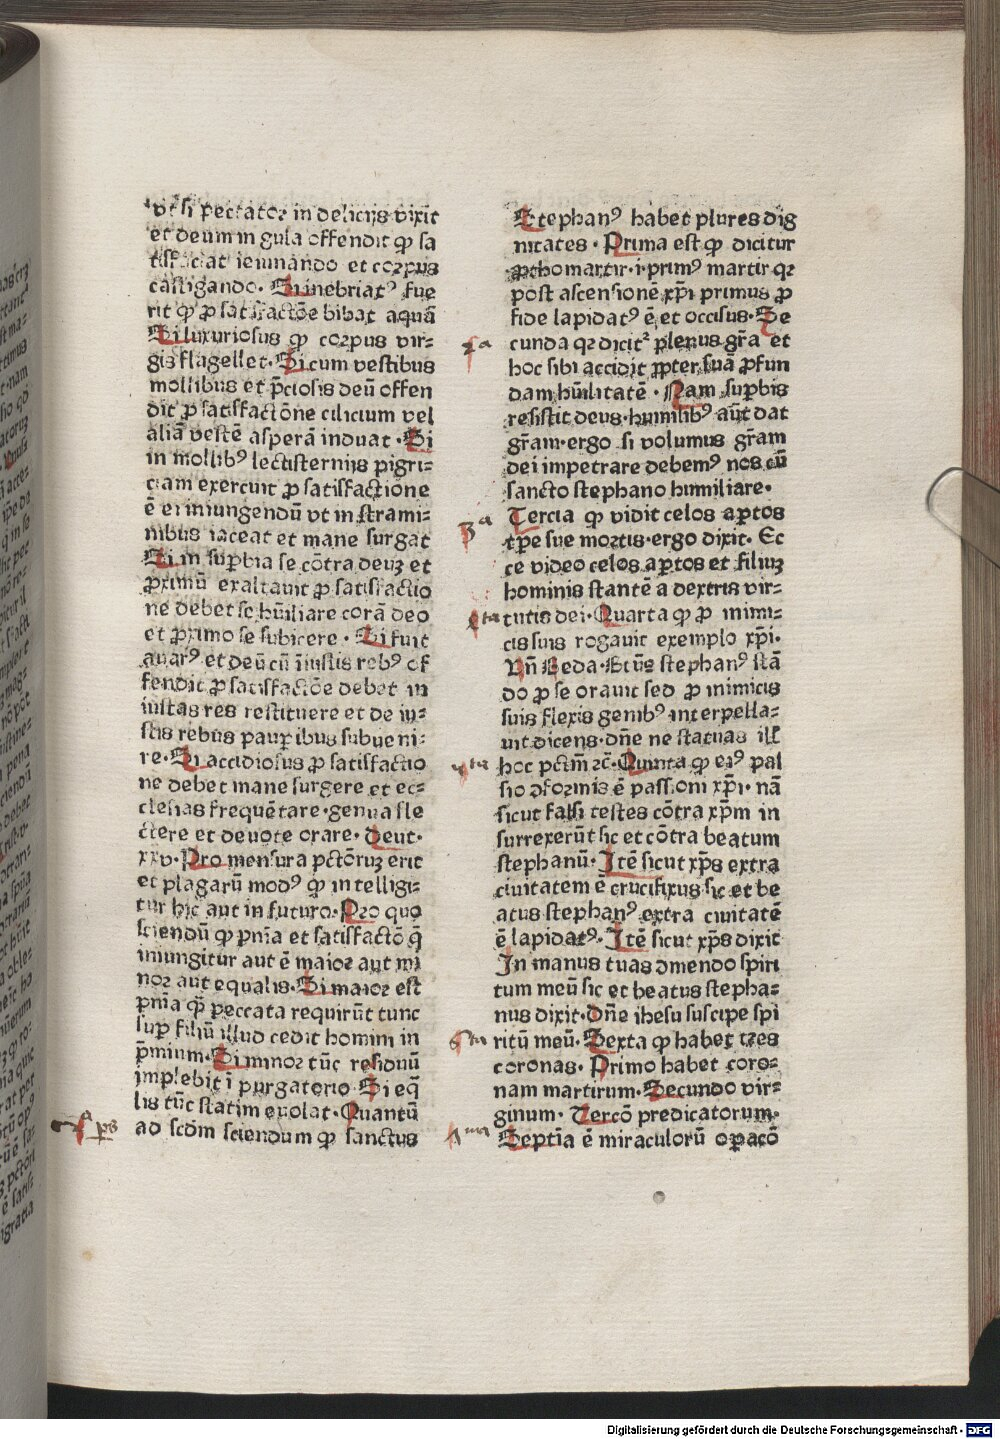 vt si peccator in delicijs vixit
et deum in gula offendit qꝫ sa
tisfaciat ieiunando et corpus
castigando· Si inebriatꝰ fue
rit qꝫ ꝓ satisfactōe bibat aquā
Si luxuriosus qꝫ corpus vir⸗
gis flagellet· Si cum vestibus
mollibus et p̄ciosis deū offen
dit ꝓ satisfactōne cilicium vel
aliā vestē asperā induat· Si
in mollibꝰ lectisternijs pigri⸗
ciam exercuit ꝓ satisfactiōne
ē ei iniungendū vt in strami⸗
nibus iaceat et mane surgat
Si in suꝑbia se cōtra deuꝫ et
ꝓximū exaltauit ꝓ satisfactio
ne debet se hūiliare corā deo
et ꝓximo se subicere· Si fuit
auarꝰ et deū cū iniustis rebꝰ of
fendit ꝓ satisfactōe debet in
iustas res restituere et de iu⸗
stis rebus pauꝑibus subueni⸗
re· Si accidiosus ꝓ satisfactio
ne debet mane surgere et ec⸗
clesias frequētare· genua fle
ctere et deuote orare· Deut·
xxv· Pro mensura pctōruꝫ erit
et plagarū modꝰ qꝫ intelligi⸗
tur hic aut in futuro· Pro quo
sciendū qꝫ pnīa et satisfactō q̄
iniungitur aut ē maior aut mi
nor aut equalis· Si maior est
pnīa qꝫ peccata requirūt tunc
suꝑ filiū illud cedit homini in
p̄mium· Si minor tūc residuū
implebit ī purgatorio Si eq̄
lis tūc statim euolat· Quantū
ad scdm̄ sciendum qꝫ sanctus
2ᵃ ps
Stephanꝰ habet plures dig
nitates· Prima est qꝫ dicitur
ꝓthomartir·i·primꝰ martir qꝛ
post ascensionē xp̄i primus ꝓ
fide lapidatꝰ ē et occisus· Se
2ᵃ
cunda qꝛ dicitᷣ plenus gr̄a et
hoc sibi accidit ꝓpter suā ꝓfun
dam hūilitatē· Nam suꝑbis
resistit deus·humilibꝰ aūt dat
gr̄am·ergo si volumus gr̄am
dei impetrare debemꝰ nos cū
sancto stephano humiliare·
3ᵃ
Tercia qꝫ vidit celos aꝑtos
tꝑe sue mortis·ergo dixit· Ec
ce video celos aꝑtos et filiuꝫ
hominis stantē a dextris vir⸗
4ᵗᵃ
tutis dei· Quarta qꝫ ꝓ inimi⸗
cis suis rogauit exemplo xp̄i·
Vn̄ Beda· Btūs stephanꝰ stā
do ꝓ se orauit sed ꝓ inimicis
suis flexis genibꝰ interpella⸗
uit dicens·dn̄e ne statuas ill̄
5ᵗᵃ
hoc pctm̄ ⁊c̄· Quinta qꝫ eiꝰ pas
sio ꝯformis ē passioni xp̄i· nā
sicut falsi testes cōtra xp̄m in
surrexerūt sic et cōtra beatum
stephanū· Itē sicut xp̄s extra
ciuitatem ē crucifixus sic et be
atus stephanꝰ extra ciuitatē
ē lapidatꝰ· Itē sicut xp̄s dixit
In manus tuas ꝯmendo spiri
tum meū sic et beatus stepha⸗
nus dixit·dn̄e ihesu suscipe spi
6ᵗᵃ
ritū meū· Sexta qꝫ habet tres
coronas· Primo habet coro⸗
nam martirum· Secundo vir⸗
ginum· Tercō predicatorum·
7ᵐᵃ
Septīa ē miraculorū oꝑacō
Digitalisierung gefördert durch die Deutsche Forschungsgemeinschaft - DFG